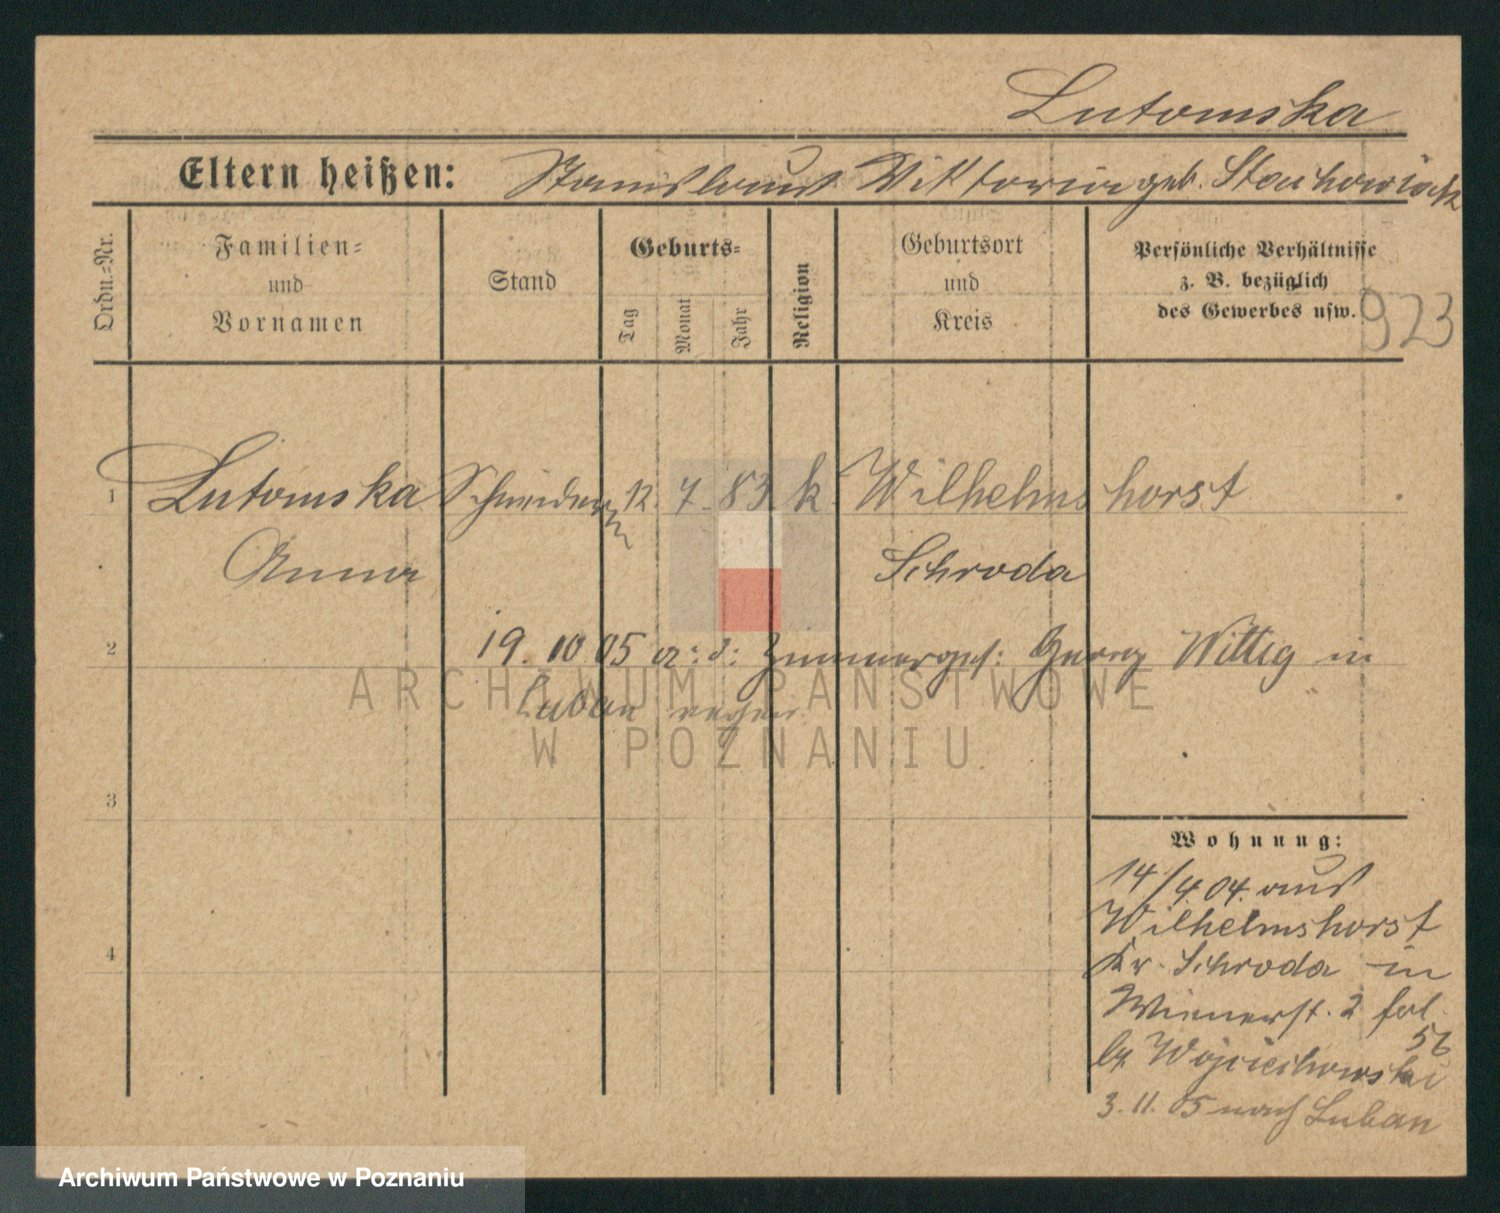 Lutomska
Eltern heißen: Stanislaus Viktoria geb. Stachowiak
Ordn.=Nr.
Familien=
und
Vornamen
Stand
Geburts=
Tag
Monat
Jahr
Religion
Geburtsort
und
Kreis
Persönliche Verhältnisse
z. B. bezüglich
des Gewerbes usw.
923
1 Lutomska Schneiderin 12. 7. 83 k. Wilhelmshorst
Anna Schroda
2 19. 10 05 a: d: Zimmerges: Georg Wittig in
Luban
3
4
Wohnung:
14/4.04. aus
Wilhelmshorst
Kr. Schroda in
Wienerst. 2
56
by. Wojciechowski
3. 11. 05 nach Luban
ARCHIWUM PAŃSTWOWE
W POZNANIU
Archiwum Państwowe w Poznaniu